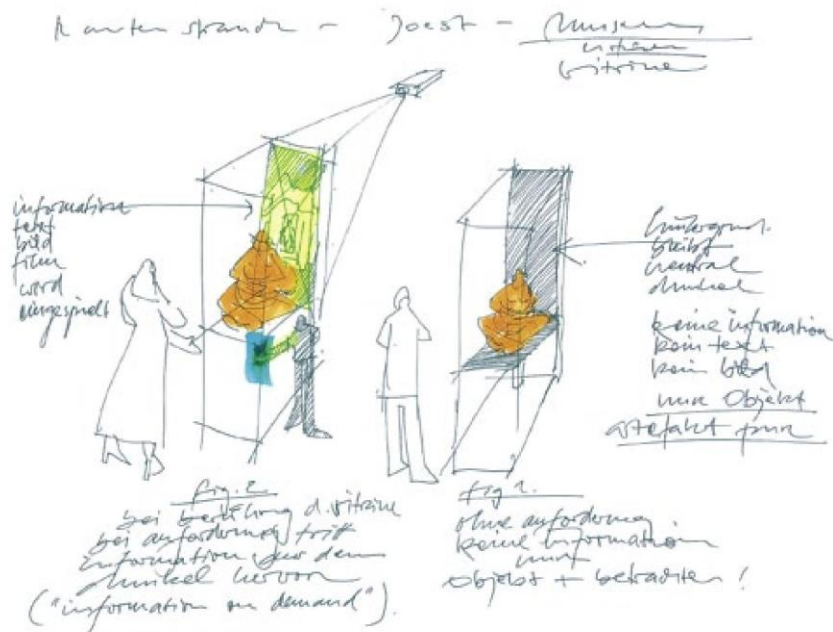 Rautenstrauch - Joest - Museum
vitrine
information
text
bild
film
wird
eingespielt
hintergrund
bleibt
neutral
dunkel
keine information
kein text
kein bild
nur Objekt
artefakt pur
fig. 2.
bei berührung d. vitrine
bei anforderung tritt
information aus dem
dunkel hervor
("information on demand").
fig 1.
ohne anforderung
keine information
nur
Objekt + betrachter!